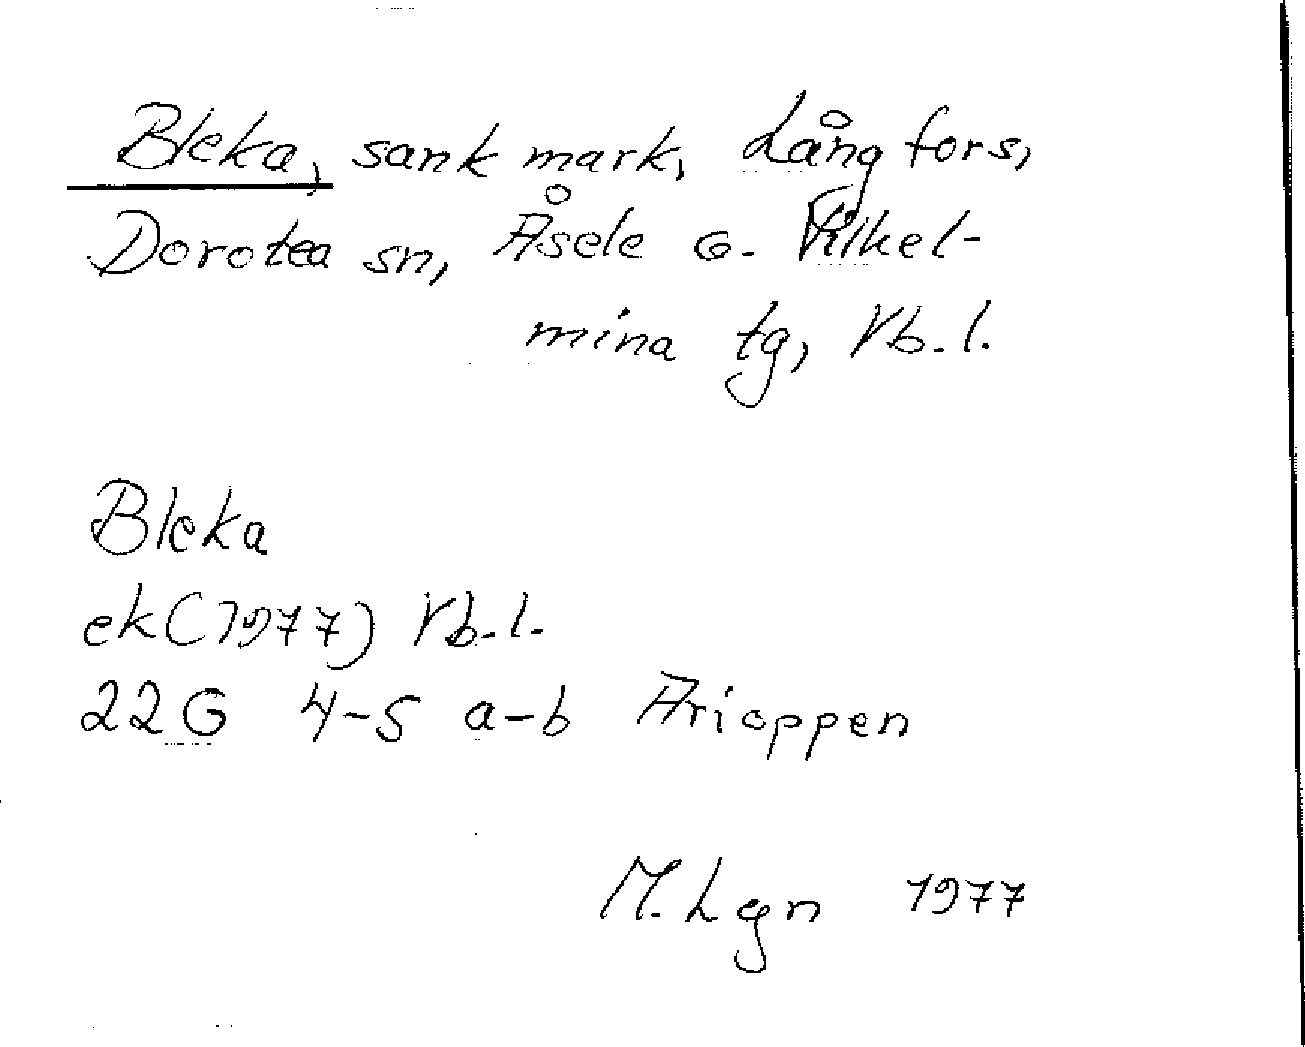 Bleka, sank mark, Långfors,
Dorotea sn, Åsele o. Vilhel-
mina tg, Vb.l.
Bleka
ek (1977) Vb.l.
22G 4-5 a-b Arioppen
M. Lgn 1977